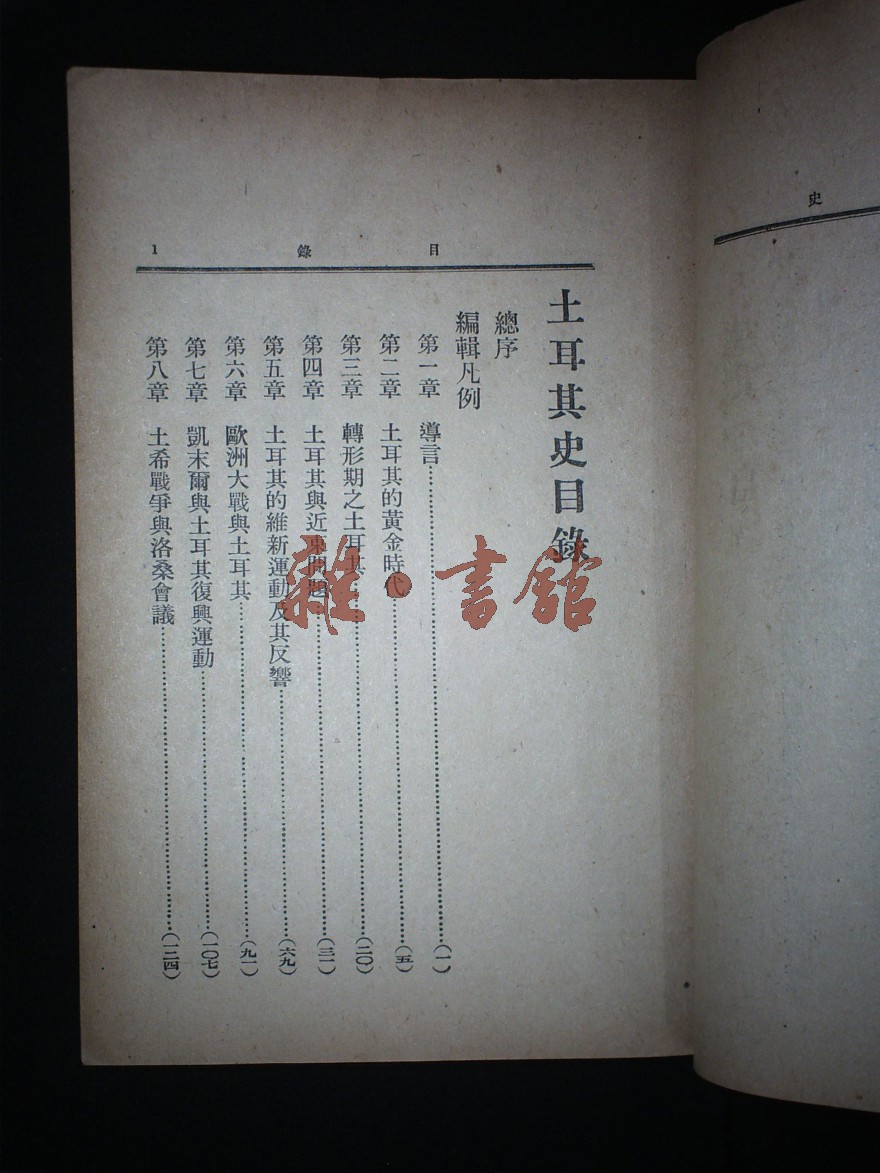 史
目錄 1
土耳其史目錄
總序
編輯凡例
第一章 導言……(一)
第二章 土耳其的黃金時代……(五)
第三章 轉形期之土耳其……(二〇)
第四章 土耳其與近東問題……(三一)
第五章 土耳其的維新運動及其反響……(六九)
第六章 歐洲大戰與土耳其……(九一)
第七章 凱末爾與土耳其復興運動……(一〇七)
第八章 土希戰爭與洛桑會議……(一二四)
雜·書館